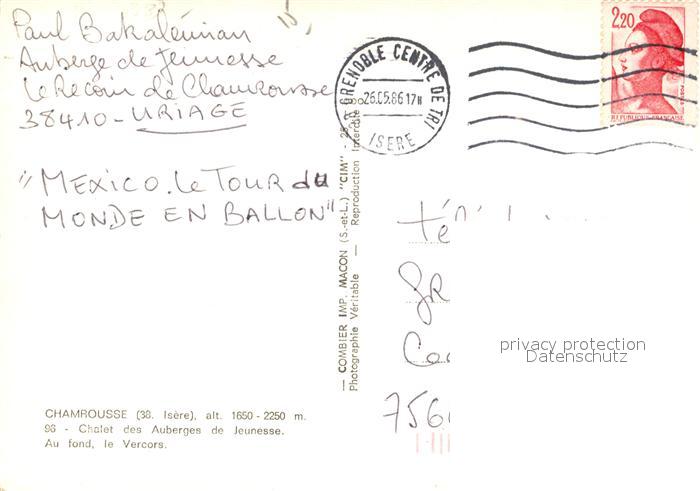 Paul Bakaléinian
Auberge de Jeunesse
Le Recoin de Chamrousse
38410 - URIAGE
"MEXICO. Le TOUR du
MONDE EN BALLON"
CHAMROUSSE (38. Isère), alt. 1650 - 2250 m.
98 - Chalet des Auberges de Jeunesse.
Au fond, le Vercors.
— COMBIER IMP. MACON (S.-et-L.) "CIM" —
Photographie Véritable — Reproduction Interdite
38 GRENOBLE CENTRE DE TRI
26.05.86 17H
ISERE
2,20
REPUBLIQUE FRANÇAISE
privacy protection
Datenschutz